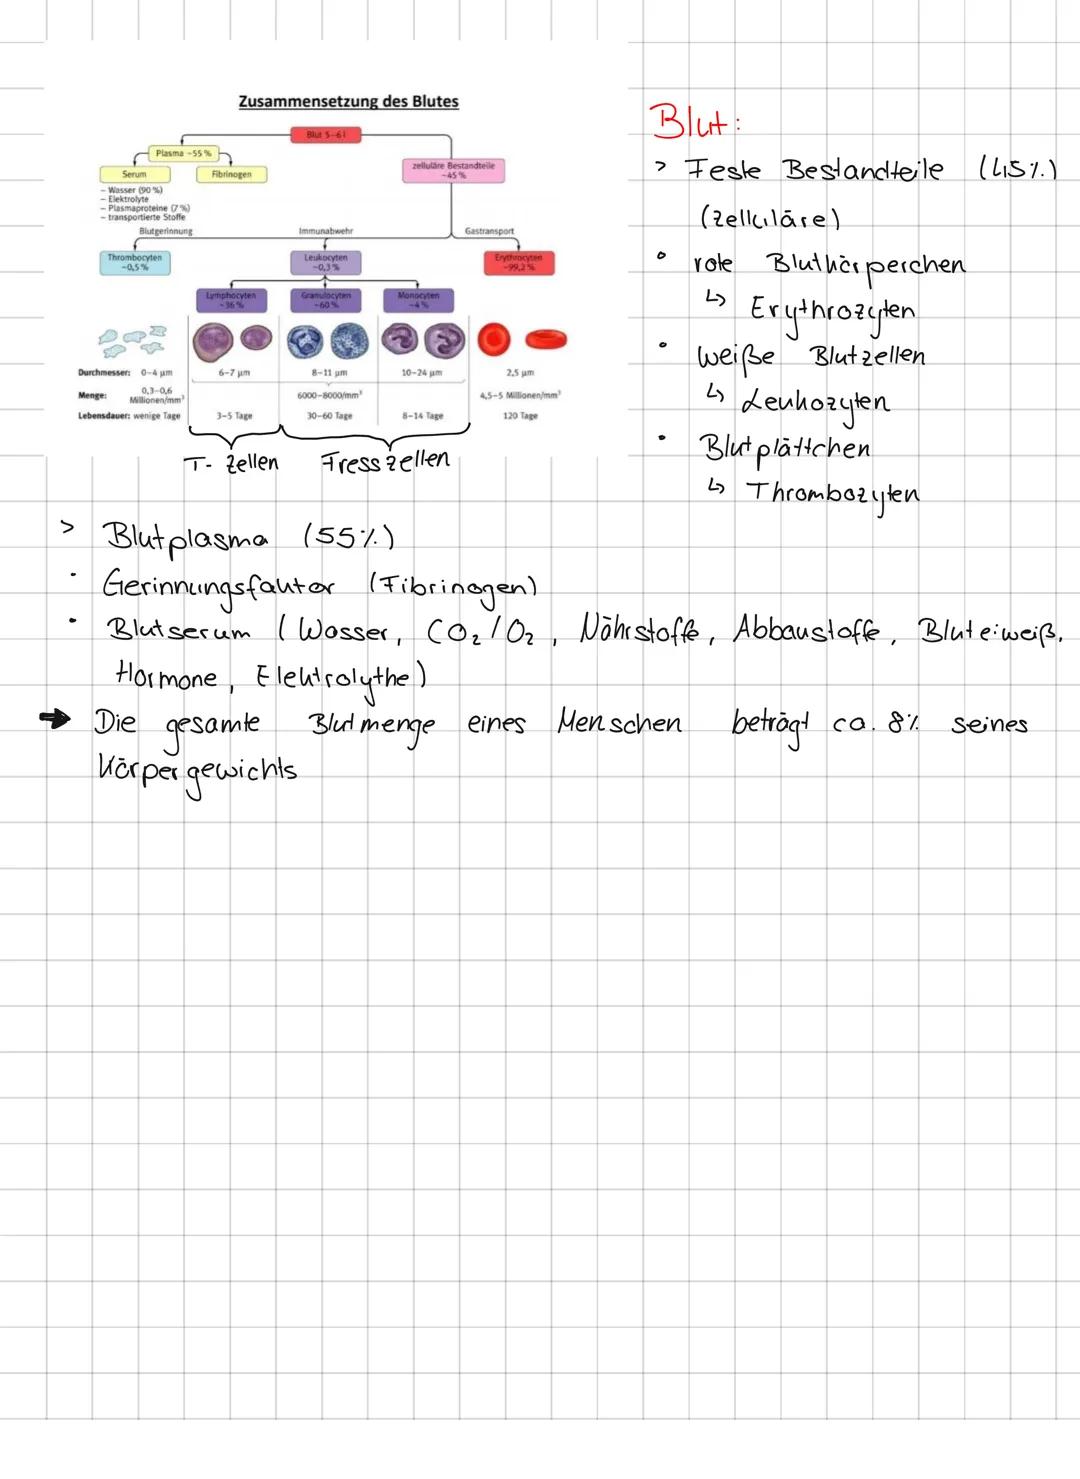 Zusammensetzung des Blutes
Blut 5-6 l
Plasma ~55 %
zelluläre Bestandteile
~45 %
Serum
Fibrinogen
- Wasser (90 %)
- Elektrolyte
- Plasmaproteine (7 %)
- transportierte Stoffe
Blutgerinnung
Immunabwehr
Gastransport
Thrombocyten
~0,5 %
Leukocyten
~0,3 %
Erythrocyten
~99,2 %
Lymphocyten
~36 %
Granulocyten
~60 %
Monocyten
~4 %
Durchmesser: 0-4 µm 6-7 µm 8-11 µm 10-24 µm 2,5 µm
Menge: 0,3-0,6 Millionen/mm³ 6000-8000/mm³ 4,5-5 Millionen/mm³
Lebensdauer: wenige Tage 3-5 Tage 30-60 Tage 8-14 Tage 120 Tage
T-Zellen Fresszellen
Blut:
> Feste Bestandteile (45%)
(zelluläre)
• rote Blutkörperchen
↳ Erythrozyten
• weiße Blutzellen
↳ Leukozyten
• Blutplättchen
↳ Thrombozyten
> Blutplasma (55%)
• Gerinnungsfaktor (Fibrinogen)
• Blutserum (Wasser, CO₂/O₂, Nährstoffe, Abbaustoffe, Bluteiweiß,
Hormone, Elektrolythe)
→ Die gesamte Blutmenge eines Menschen beträgt ca. 8% seines
Körpergewichts